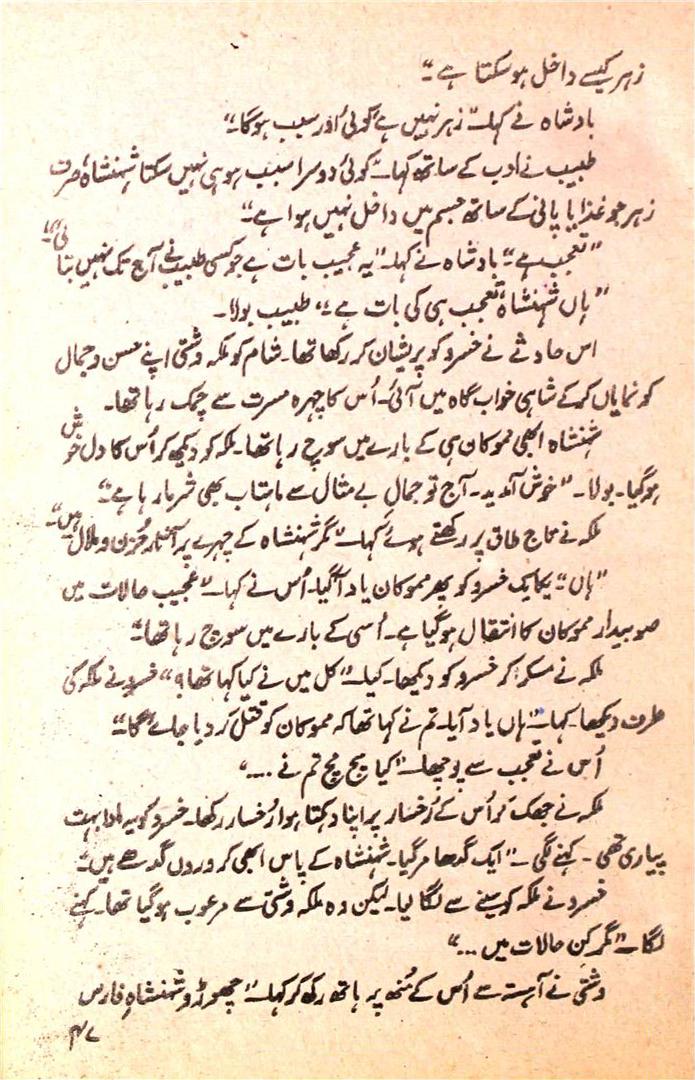 زہر کیسے داخل ہو سکتا ہے۔"
بادشاہ نے کہا۔ "زہر نہیں ہے کوئی اور سبب ہوگا۔"
طبیب نے ادب کے ساتھ کہا۔ "کوئی دوسرا سبب ہو ہی نہیں سکتا شہنشاہ! صرف
زہر جو غذا یا پانی کے ساتھ جسم میں داخل نہیں ہوا ہے۔"
"تعجب ہے۔" بادشاہ نے کہا۔ "یہ عجیب بات ہے جو کسی طبیب نے آج تک نہیں بتائی۔"
"ہاں شہنشاہ! تعجب ہی کی بات ہے۔" طبیب بولا۔
اس حادثے نے خسرو کو پریشان کر رکھا تھا۔ شام کو ملکہ وشتی اپنے حسن و جمال
کو نمایاں کر کے شاہی خواب گاہ میں آئی۔ اُس کا چہرہ مسرت سے چمک رہا تھا۔
شہنشاہ ابھی مموکان ہی کے بارے میں سوچ رہا تھا۔ ملکہ کو دیکھ کر اُس کا دل خوش
ہوگیا۔ بولا۔ "خوش آمدید۔ آج تو جمالِ بے مثال سے ماہتاب بھی شرما رہا ہے۔"
ملکہ نے تاج طاق پر رکھتے ہوئے کہا۔ "مگر شہنشاہ کے چہرے پر آثارِ حُزن و ملال ہیں۔"
"ہاں۔" یکایک خسرو کو پھر مموکان یاد آگیا۔ اُس نے کہا۔ "عجیب حالات میں
صوبیدار مموکان کا انتقال ہوگیا ہے۔ اُسی کے بارے میں سوچ رہا تھا۔"
ملکہ نے مسکرا کر خسرو کو دیکھا۔ کہا۔ "کل میں نے کیا کہا تھا؟" خسرو نے ملکہ کی
طرف دیکھا۔ کہا۔ "ہاں یاد آیا۔ تم نے کہا تھا کہ مموکان کو قتل کر دیا جائے گا۔"
اُس نے تعجب سے پوچھا۔ "کیا سچ مچ تم نے ...."
ملکہ نے جھک کر اُس کے رُخسار پر اپنا دہکتا ہوا رُخسار رکھا۔ خسرو کو یہ ادا بہت
پیاری تھی۔ کہنے لگی۔ "ایک گدھا مرگیا۔ شہنشاہ کے پاس ابھی کروروں گدھے ہیں۔"
خسرو نے ملکہ کو سینے سے لگا لیا۔ لیکن وہ ملکہ وشتی سے مرعوب ہوگیا تھا۔ کہنے
لگا۔ "مگر کن حالات میں ..."
وشتی نے آہستہ سے اُس کے مُنھ پر ہاتھ رکھ کر کہا۔ "چھوڑو شہنشاہِ فارس
۴۷